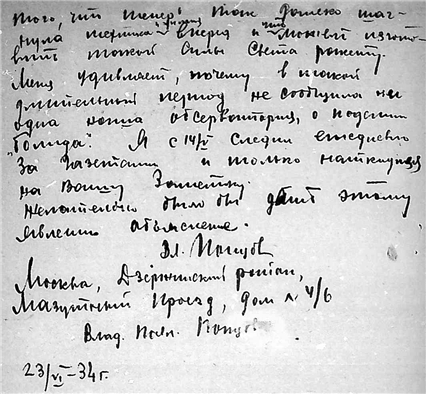 того, что теперь так далеко шаг-
нула техника вперед и может изгото-
вить такой силы света ракету.
Меня удивляет, почему в такой
длительный период не сообщила ни
одна наша обсерватория, о падении
"болида". Я с 14/VI следил ежедневно
за газетами и только наткнулся
на Вашу заметку.
Желательно было бы дать этому
явлению объяснение.
Вл.
Москва, Дзержинский район,
Мазутный проезд, дом № 4/6
Влад.
23/VI-34г.